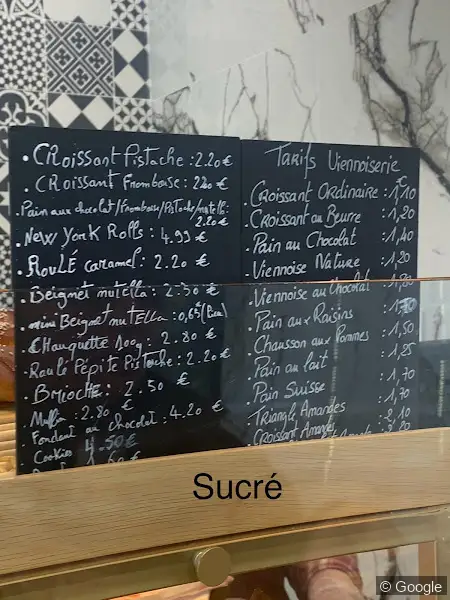 • Croissant Pistache : 2.20 €
• Croissant Framboise : 2.20 €
• Pain aux chocolat/Framboise/Pistache/nutella :
2.20 €
• New York Rolls : 4.99 €
• Roulé caramel : 2.20 €
• Beignet nutella : 2.50 €
• mini Beignet nutella : 0,65
• Chouquette 100g : 2.80 €
• Roulé Pépite Pistache : 2.20 €
• Brioche : 2.50 €
• Muffin : 2.80 €
• Fondant au chocolat : 4.20 €
• Cookies 4.50€
Tarifs Viennoiserie
€
• Croissant Ordinaire : 1,10
• Croissant au Beurre : 1,20
• Pain au Chocolat : 1,40
• Viennoise Nature : 1,20
• Viennoise au Chocolat
• Pain aux Raisins
• Chausson aux Pommes : 1,50
• Pain au lait : 1,25
• Pain Suisse : 1,70
• Triangle Amandes : 1,70
• Croissant Amandes : 2,10
Sucré
© Google